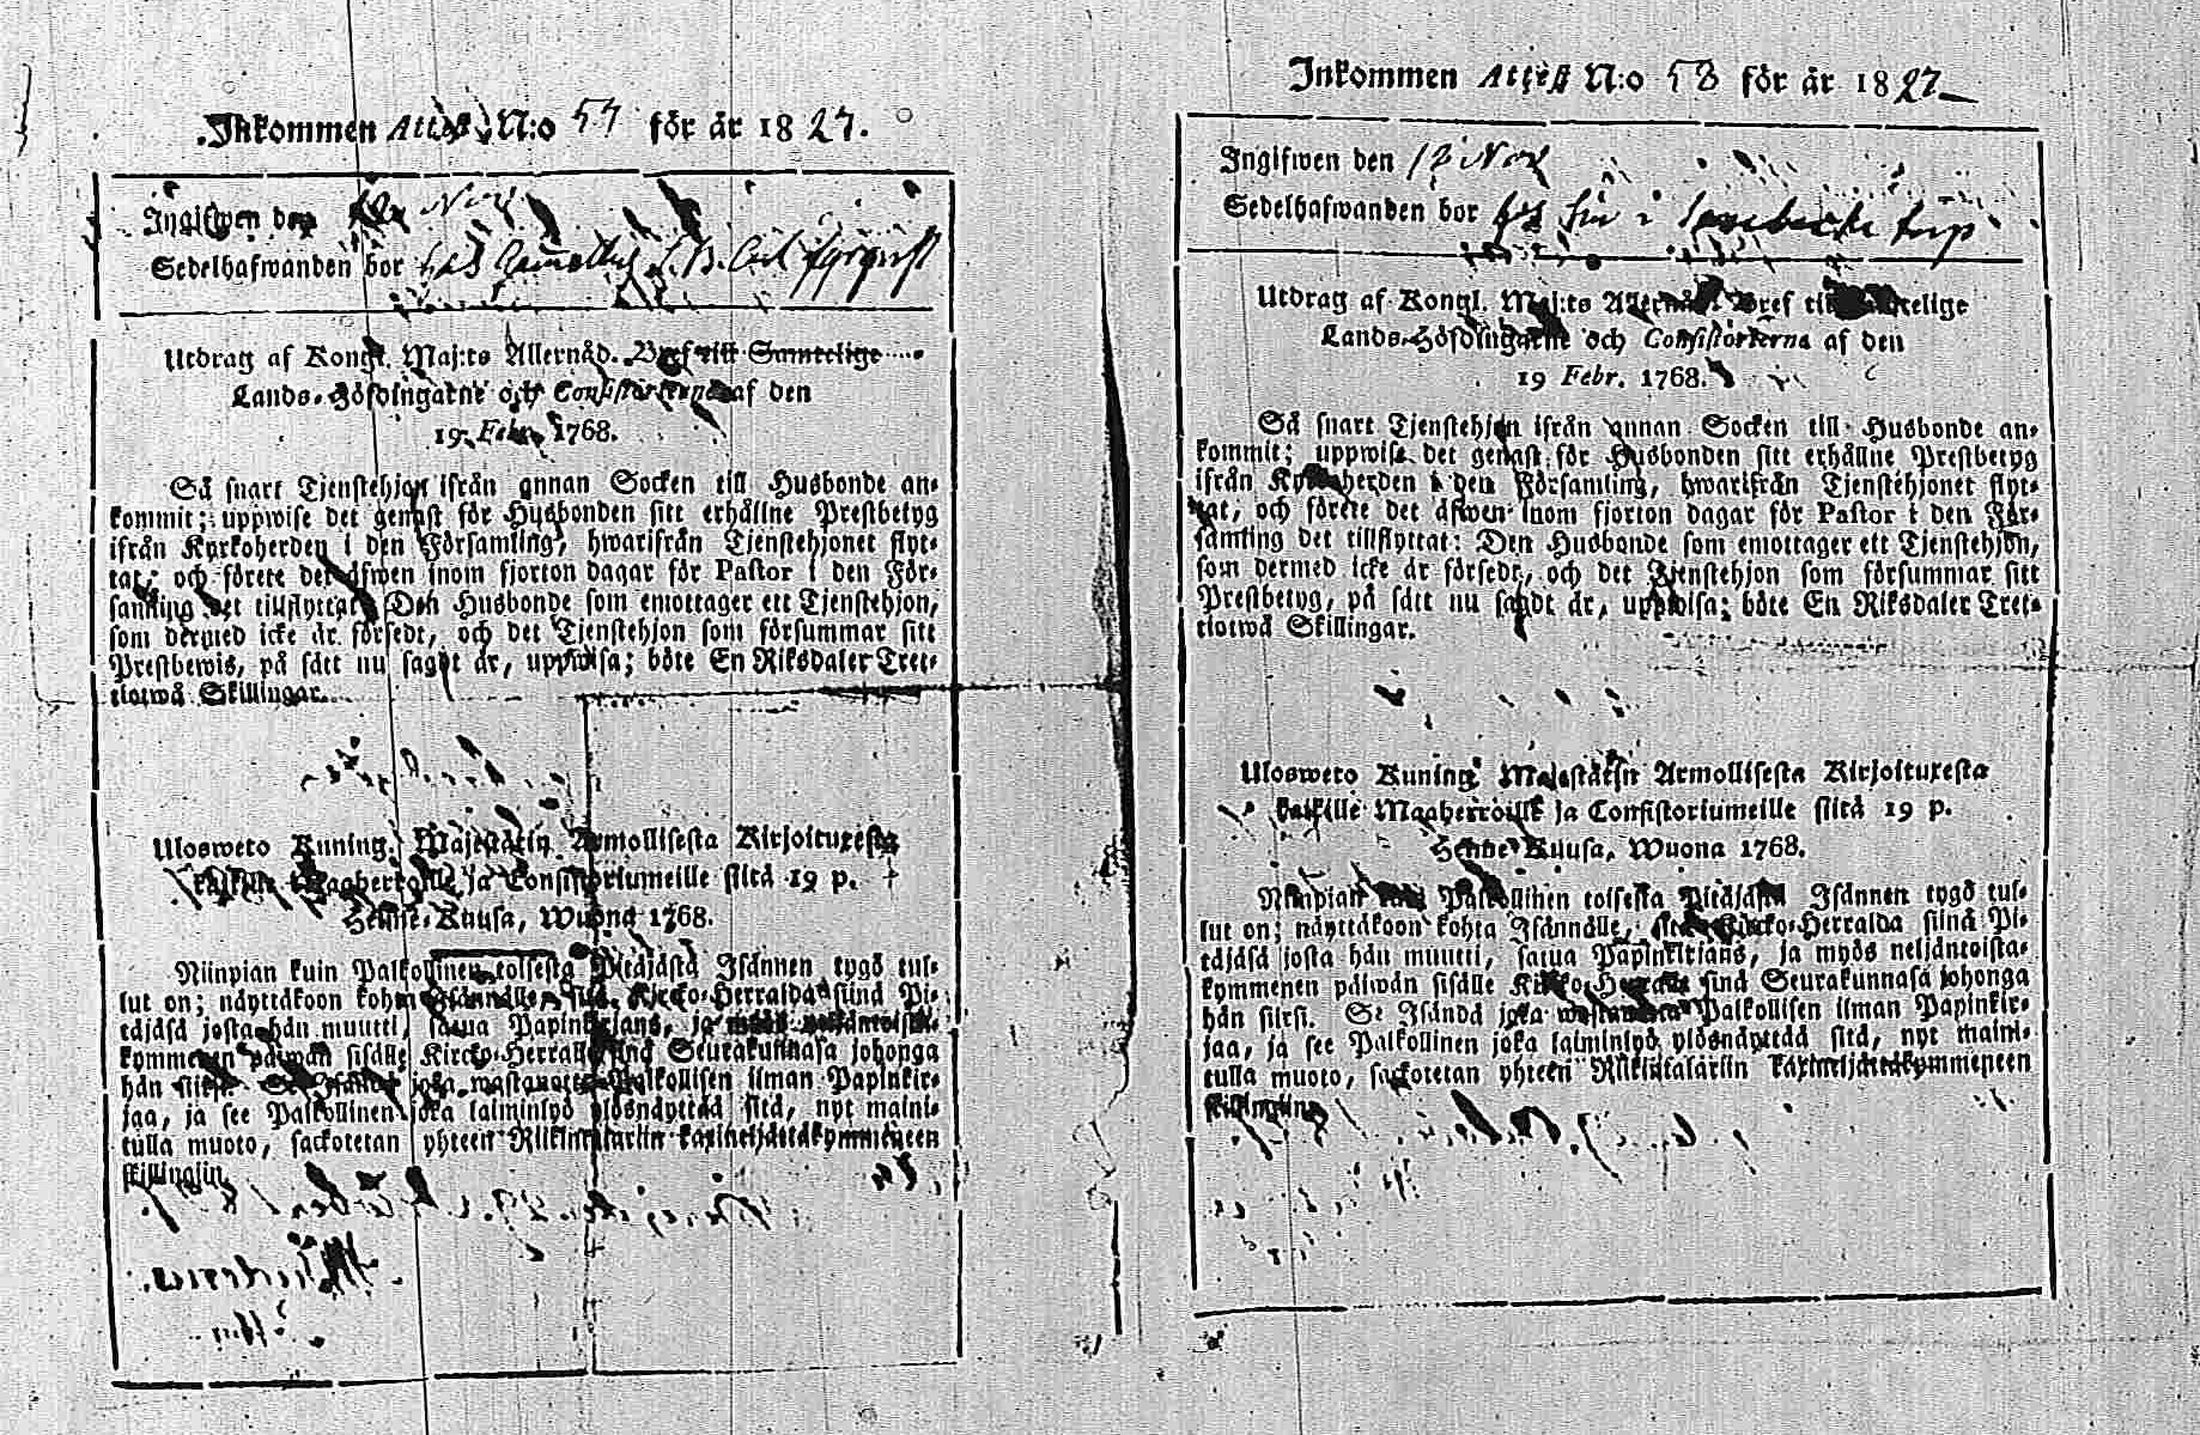 Inkommen Attest N:o 57 för år 1827.
Ingifwen den Nov
Sedelhafwanden bor hos
Utdrag af Kongl. Maj:ts Allernåd. Bref till Samtelige
Lands-Höfdingarne och Consistorierna af den
19 Febr. 1768.
Så snart Tjenstehjon ifrån annan Socken till Husbonde an-
kommit; uppwise det genast för Husbonden sitt erhållne Prestbetyg
ifrån Kyrkoherden i den Församling, hwarifrån Tjenstehjonet flyt-
tat, och förete det äfwen inom fjorton dagar för Pastor i den För-
samling det tillflyttat: Den Husbonde som emottager ett Tjenstehjon,
som dermed icke är försedt, och det Tjenstehjon som försummar sitt
Prestbewis, på sätt nu sagdt är, uppwisa; böte En Riksdaler Tret-
tiotwå Skillingar.
Ulosweto Kuning. Majestätin Armollisesta Kirjoituxesta
kaikille Maaherroille ja Consistoriumeille siitä 19 p.
Helme-Kuusa, Wuona 1768.
Niinpian kuin Palkollinen toisesta Pitäjästä Isännen tygö tul-
lut on; näyttäköön kohta Isännälle, sitä Kircko-Herralda siinä Pi-
täjäsä josta hän muutti, saatua Papinkirjans, ja myös neljäntoista-
kymmenen päiwän sisälle Kircko-Herralle siinä Seurakunnasa johonga
hän siirsi. Se Isändä joka wastanotta Palkollisen ilman Papinkir-
jaa, ja see Palkollinen joka laiminlyö ylösnäyttää sitä, nyt maini-
tulla muoto, sackotetan yhteen Riikintalariin kaxineljättäkymmeneen
skillingiin.
Inkommen Attest N:o 58 för år 1827
Ingifwen den 12 Nov
Sedelhafwanden bor hos
Utdrag af Kongl. Maj:ts Allernåd. Bref till Samtelige
Lands-Höfdingarne och Consistorierna af den
19 Febr. 1768.
Så snart Tjenstehjon ifrån annan Socken till Husbonde an-
kommit; uppwise det genast för Husbonden sitt erhållne Prestbetyg
ifrån Kyrkoherden i den Församling, hwarifrån Tjenstehjonet flyt-
tat, och förete det äfwen inom fjorton dagar för Pastor i den För-
samling det tillflyttat: Den Husbonde som emottager ett Tjenstehjon,
som dermed icke är försedt, och det Tjenstehjon som försummar sitt
Prestbetyg, på sätt nu sagdt är, uppwisa; böte En Riksdaler Tret-
tiotwå Skillingar.
Ulosweto Kuning. Majestätin Armollisesta Kirjoituxesta
kaikille Maaherroille ja Consistoriumeille siitä 19 p.
Helme-Kuusa, Wuona 1768.
Niinpian kuin Palkollinen toisesta Pitäjästä Isännen tygö tul-
lut on; näyttäköön kohta Isännälle, sitä Kircko-Herralda siinä Pi-
täjäsä josta hän muutti, saatua Papinkirjans, ja myös neljäntoista-
kymmenen päiwän sisälle Kircko-Herralle siinä Seurakunnasa johonga
hän siirsi. Se Isändä joka wastanotta Palkollisen ilman Papinkir-
jaa, ja see Palkollinen joka laiminlyö ylösnäyttää sitä, nyt maini-
tulla muoto, sackotetan yhteen Riikintalariin kaxineljättäkymmeneen
skillingiin.